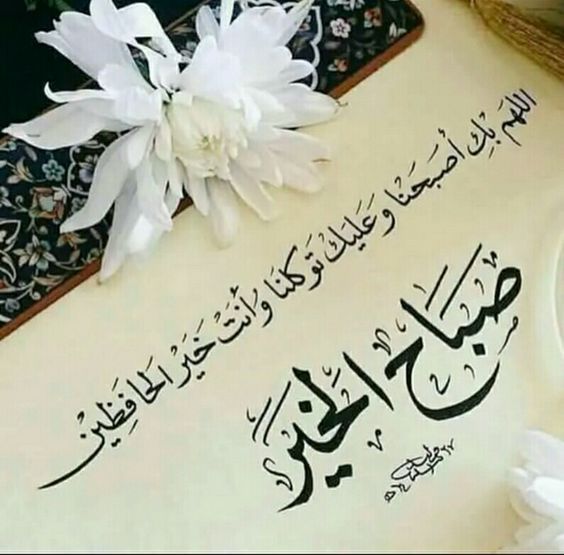 اللهم بِك أَصبَحنَا وَعَليكَ تَوَكلنَا وَأَنتَ خَيرُ الحَافِظِين
صَبَاح الخَير